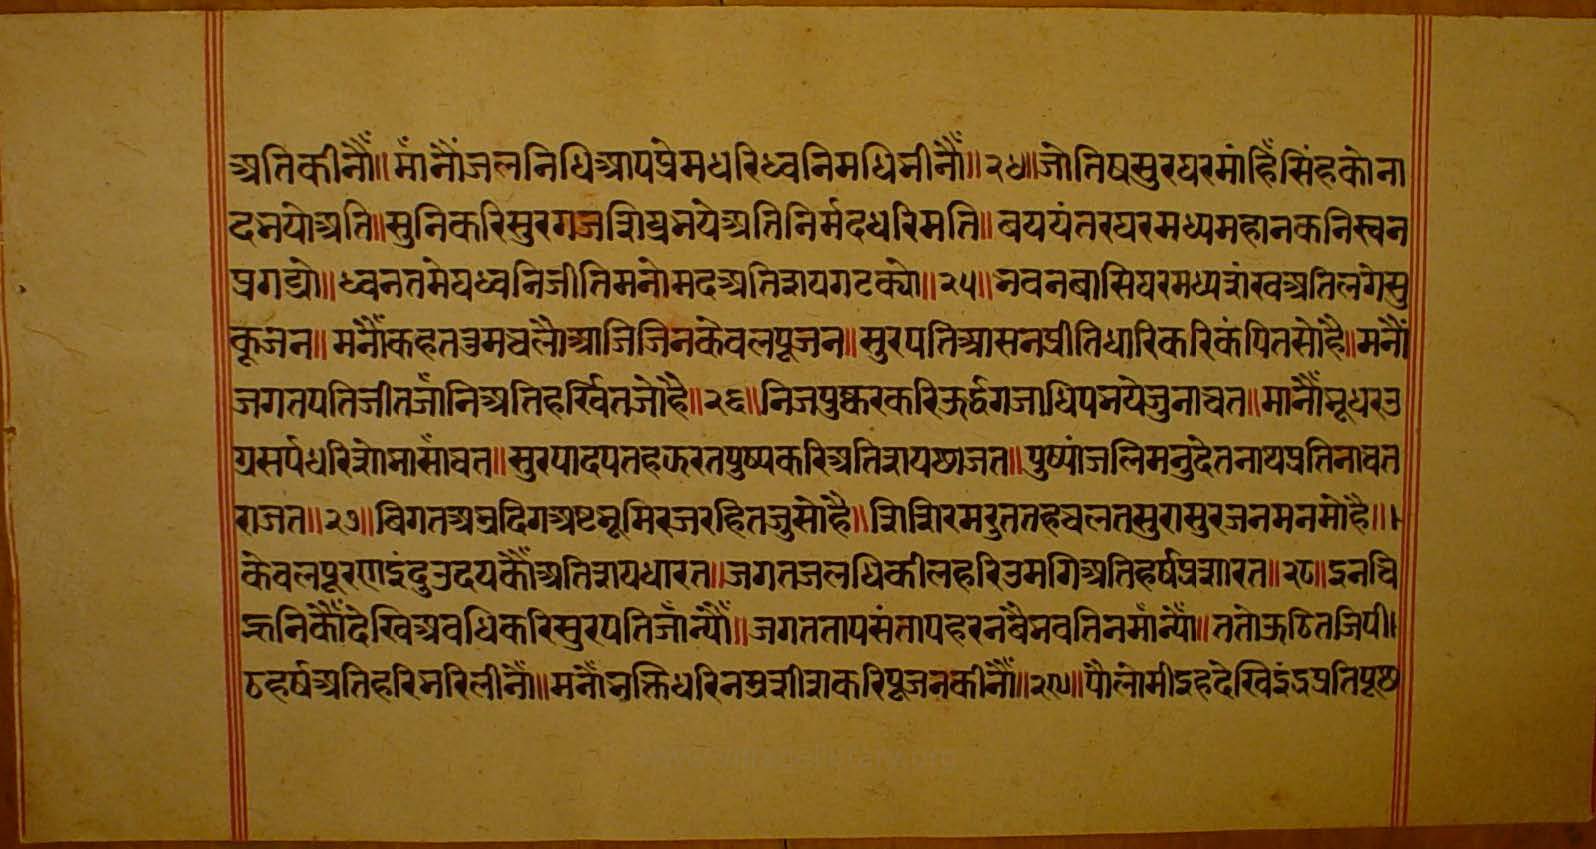 अतिकीनौं॥मांनौंजलनिधिआपप्रेमधरिध्वनिमधिभीनौं॥२४॥जोतिषसुरघरमांहिंसिंहकोना
दभयोअति॥सुनिकरिसुरगजशिघ्रभयेअतिनिर्मदधरिमति॥बयययंतरघरमध्यमहानकनिस्वन
प्रगट्यो॥ध्वनतमेघध्वनिजीतिमनोमदअतिशयगटक्यो॥२५॥भवनबासिघरमध्यशंखअतिलगेसु
कूजन॥मनौंकहतउमचलौआजिजिनकेवलपूजन॥सुरपतिआसनप्रीतिधारिकरिकंपितसोहै॥मनौं
जगतपतिजीतजांनिअतिहर्षितजोहै॥२६॥निजपुष्करकरिऊर्द्धगजाधिपभयेजुनाचत॥मानौंभूधरउ
ग्रसर्पधरिशोभासांचत॥सुरपादपतहऊरतपुष्पकरिअतिशयछाजत॥पुष्पांजलिमनुदेतनाथप्रतिनाचत
राजत॥२७॥विगतअभ्रदिगअष्टभूमिरजरहितजुसोहै॥शिशिरमरुततहचलतसुरासुरजनमनमोहै॥।
केवलपूरणइंदुउदयकौंअतिशयधारत॥जगतजलधिकीलहरिउमगिअतिहर्षप्रशारत॥२८॥इनचि
ह्ननिकौंदेखिअवधिकरिसुरपतिजांन्यौं॥जगततापसंतापहरनबैभवतिनमांन्यौं॥ततोऊठितजिपी।
ठहर्षअतिहरिभरिलीनौं॥मनौंभक्तिधरिनम्रशीशकरिपूजनकीनौं॥२९॥पौलोमीइहदेखिइंद्रप्रतिपूछ